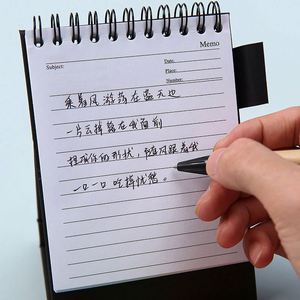 Memo
Subject:
Date:
Place:
Number:
乘着风 游荡在蓝天边
一片云掉落在我面前
捏成你的形状，随风跟着我
一口一口吃掉忧愁。